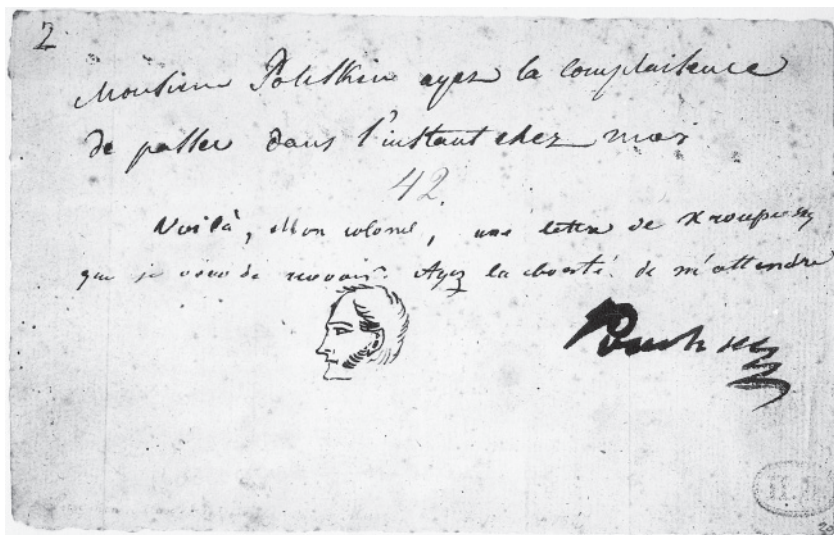 2
Monsieur Poutskin ayez la complaisence
de passer dans l'instant chez moi
42.
Voilà, Mon colonel, une lettre de Kroupensky
que je viens de recevoir. Ayez la bonté de m'attendre
Pouchkin